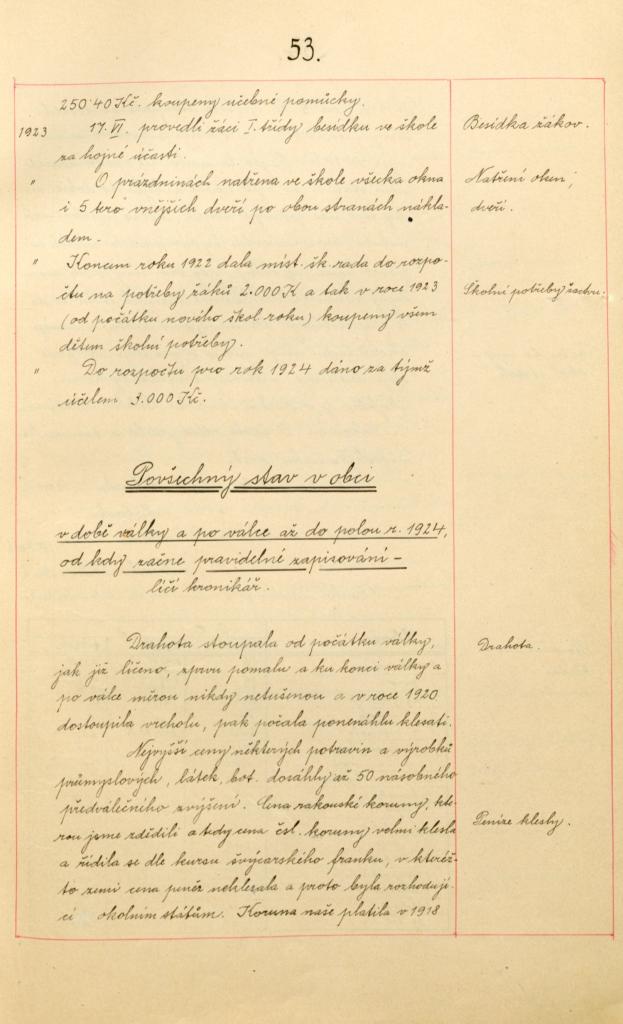 53.
250·40 Kč. koupeny učebné pomůcky.
1923 17. VI. provedli žáci I. třídy besídku ve škole Besídka žákov.
za hojné účasti.
" O prázdninách natřena ve škole všecka okna Natření oken,
i 5 tero vnějších dveří po obou stranách nákla- dveří.
dem.
" Koncem roku 1922 dala míst. šk. rada do rozpo-
čtu na potřeby žáků 2.000 K a tak v roce 1923 Školní potřeby
(od počátku nového škol. roku) koupeny všem
dětem školní potřeby.
" Do rozpočtu pro rok 1924 dáno za týmž
účelem 3.000 Kč.
Povšechný stav v obci
v době války a po válce až do polou r. 1924,
od kdy začne pravidelné zapisování –
líčí kronikář.
Drahota stoupala od počátku války, Drahota.
jak již líčeno, zprvu pomalu a ku konci války a
po válce měrou nikdy netušenou a v roce 1920
dostoupila vrcholu, pak počala ponenáhlu klesati.
Nejvyšší ceny některých potravin a výrobků
průmyslových, látek, bot. dosáhly až 50 násobného
předválečného zvýšení. Cena rakouské koruny, kte-
rou jsme zdědili a tedy cena čsl. koruny velmi klesla Peníze klesly.
a řídila se dle kursu švýcarského franku, v kteréž-
to zemi cena peněz neklesala a proto byla rozhodují-
cí okolním státům. Koruna naše platila v 1918